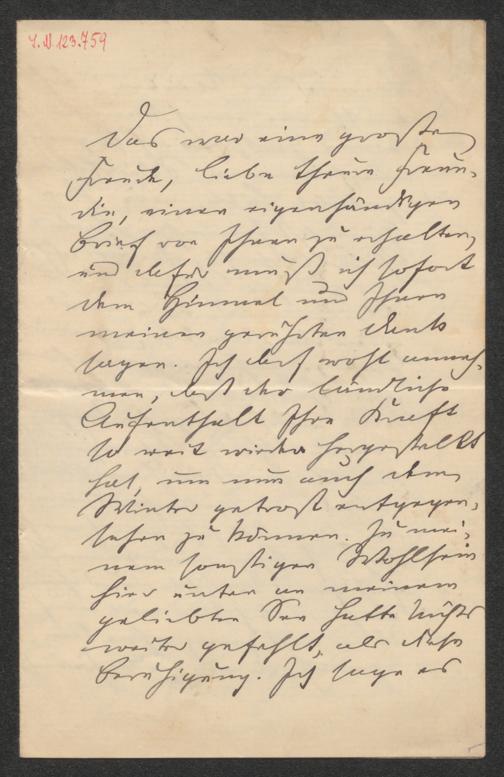 I.N. 123.759
Das war eine große
Freude, liebe theure Freun-
din, einen eigenhändigen
Brief von Ihnen zu erhalten,
und dafür muß ich sofort
dem Himmel und Ihnen
meinen gerührten Dank
sagen. Ich darf wohl anneh-
men, daß der ländliche
Aufenthalt Ihre Kraft
so weit wieder hergestellt
hat, um nun auch dem
Winter getrost entgegen-
sehen zu können. Zu mei-
nem sonstigen Wohlsein
hier unten an meinem
geliebten See hatte Nichts
weiter gefehlt, als diese
Beruhigung. Ich sage es